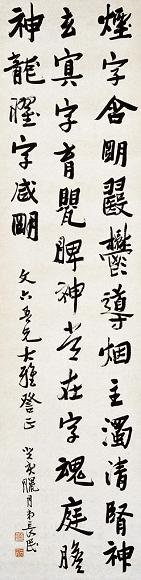 煙字含明翳鬱導烟主濁清腎神
玄冥字育嬰脾神常在字魂庭膽
神龍曜字威明
文六吾兄大雅詧正
癸亥臘月弟長民